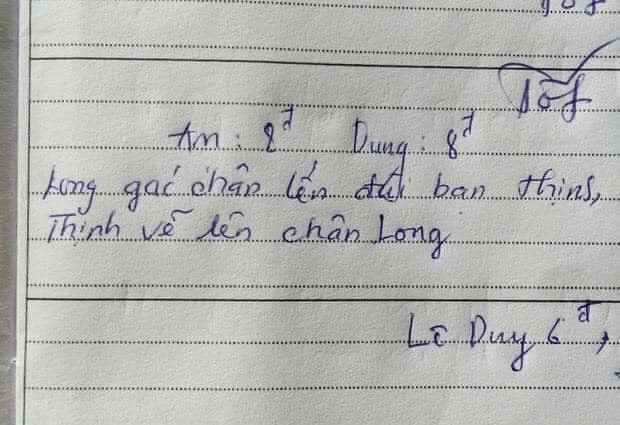 Tốt
An : 8đ Dung : 8đ
Long gác chân lên đùi bạn Thịnh,
Thịnh vẽ lên chân Long
Lê Duy 6đ,